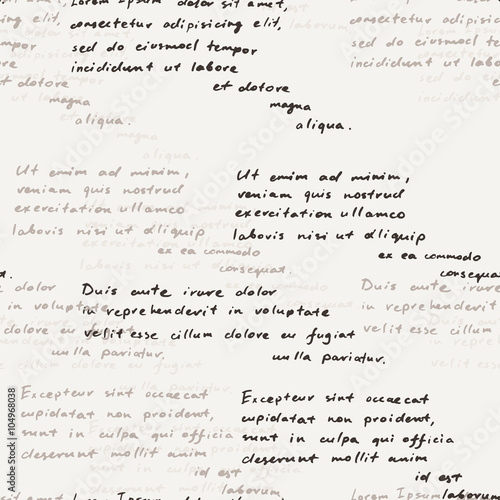 Lorem Ipsum dolor sit amet,
consectetur adipisicing elit,
sed do eiusmocl tempor
incididunt ut labore
et dotore
magna
aliqua.
consectetur adipisicing
sed do eiusmocl
incididunt ut
magna
aliqua.
Ut emim ad minim,
veniam quis nostrud
exercitation ullamco
laboris nisi ut aliquip
ex ea commodo
consequat.
Ut emim ad minim,
veniam quis nostrud
exercitation ullamco
laboris nisi ut aliquip
ex ea commodo
consequat.
Duis aute irure dolor
in reprehenderit in voluptate
velit esse cillum dolore eu fugiat
nulla pariatur.
Duis aute irure dolor
in reprehenderit in voluptate
velit esse cillum dolore eu fugiat
nulla pariatur.
Excepteur sint occaecat
cupidatat non proident,
sunt in culpa qui officia
deserunt mollit anim
id est
laborum.
Excepteur sint occaecat
cupidatat non proident,
sunt in culpa qui officia
deserunt mollit anim
id est
laborum
Lorem Ipsum
Adobe Stock
104968038